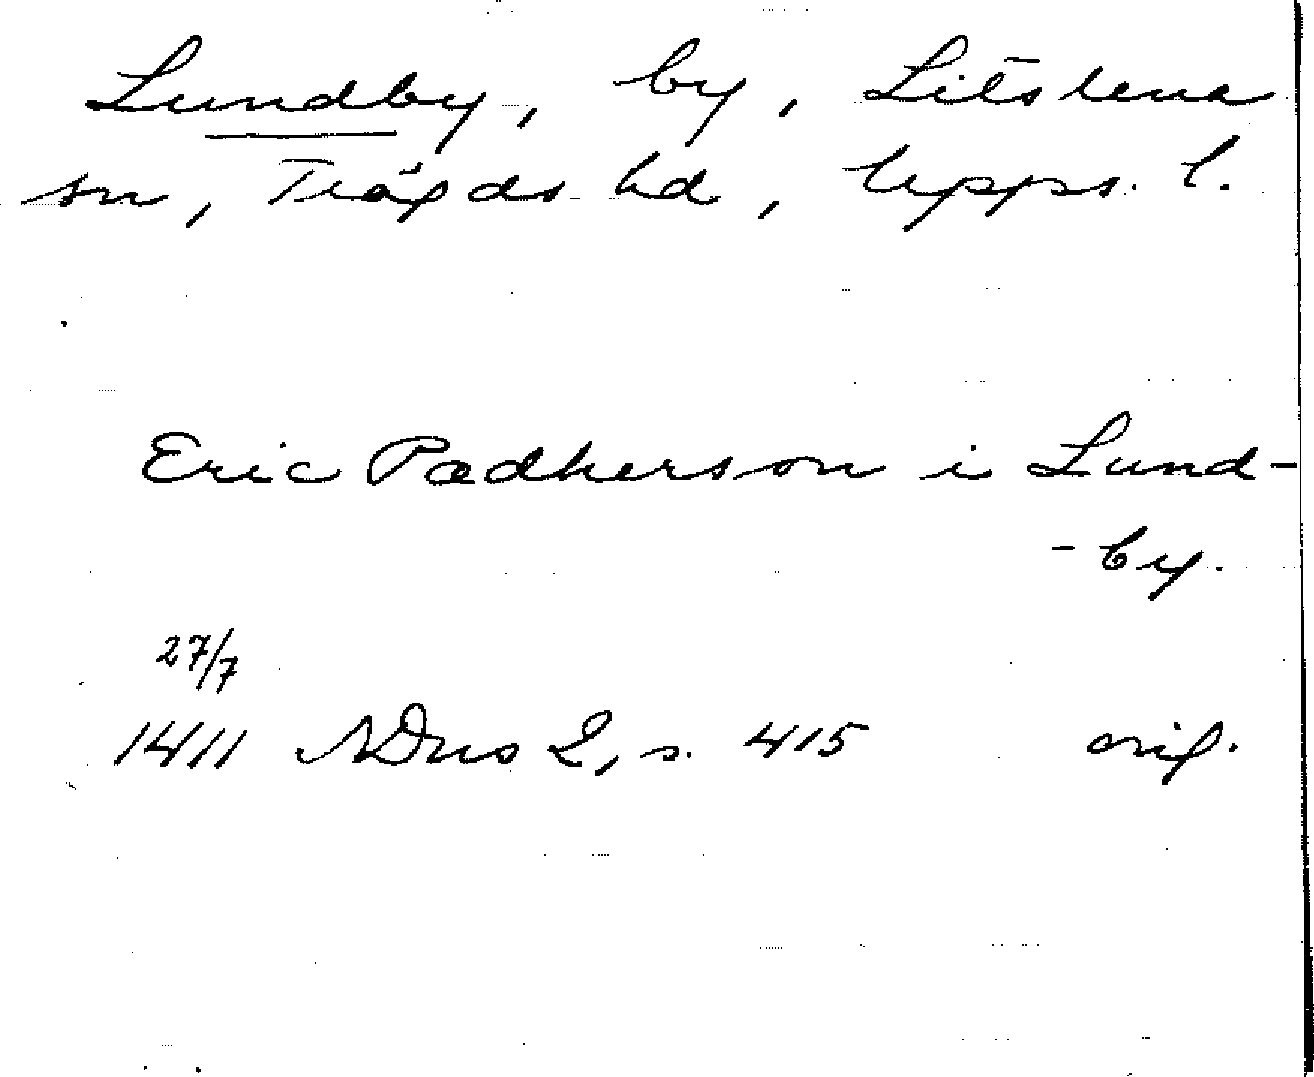 Lundby, by, Litslena
sn, Trögds hd, Upps. l.
Eric Pædherson i Lund-
-by.
27/7
1411 NDns 2, s. 415 orig.